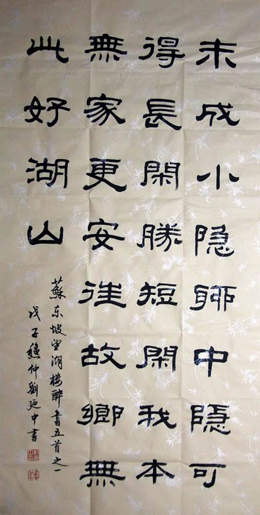 未成小隐聊中隐可
得長閑勝短閑我本
無家更安往故鄉無
此好湖山
蘇东坡望湖楼醉書五首之一
戊子穐仲劉延中書